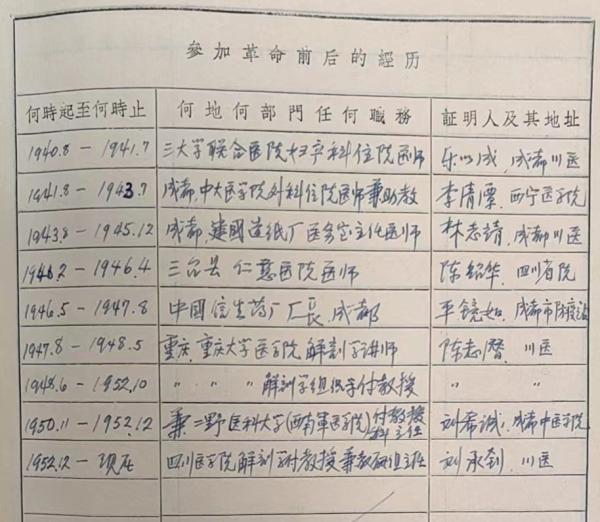 參加革命前后的經历
何時起至何時止 何地何部門任何職務 証明人及其地址
1940.8 — 1941.7 三大学联合医院妇产科住院医师 乐以成, 成都川医
1941.8 — 1943.7 成都,中大医学院外科住院医师兼助教 李清潭, 西宁医学院
1943.8 — 1945.12 成都,建國造纸厂医务室主任医师 林志靖, 成都川医
1946.2 — 1946.4 三台县仁慈医院医师 陈绍华, 四川省院
1946.5 — 1947.8 中國信生药厂厂長,成都 镜如, 成都市防疫站
1947.8 — 1948.5 重庆,重庆大学医学院,解剖学讲师 陈志潛, 川医
1948.6 — 1952.10 〃 〃 〃 解剖学组织学付教授 〃 〃
1950.11 — 1952.12 兼二野医科大学(西南軍医学院)付教授科主任 刘希诚, 成都中医学院
1952.12 — 现在 四川医学院解剖学付教授兼教研组主任 刘承釗, 川医